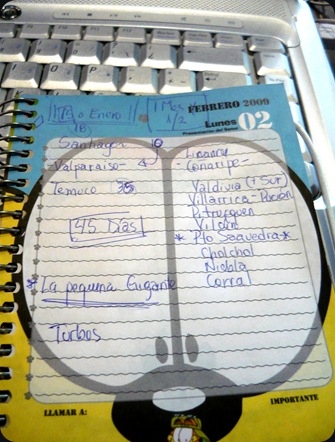 17 o Enero
18
1 Mes
1/2
FEBRERO 2009
Lunes 02
Santiago 10
Valparaiso - 4
Temuco 35
45 Dias
* La pequeña Gigante
Turbos
Licanray
- Coñaripe -
Valdivia (+ Sur)
Villarrica - Pucón
Pitrufquen
Vilcún
* Pto Saavedra *
Cholchol
Niebla
Corral
LLAMAR A:
IMPORTANTE